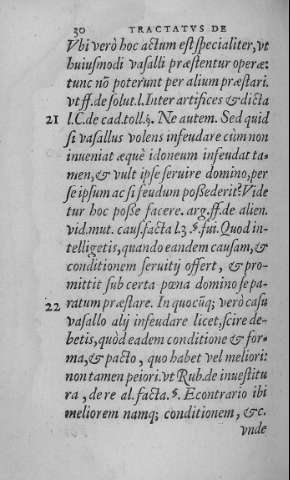 30 TRACTATVS DE
Vbi verò hoc actum est specialiter, vt
huiusmodi vasalli præstentur operæ:
tunc nõ poterunt per alium præstari.
vt ff. de solut. l. Inter artifices & dicta
21 l. C. de cad. toll. §. Ne autem. Sed quid
si vasallus volens infeudare cùm non
inueniat æquè idoneum infeudat ta-
men, & vult ipse seruire domino, per
se ipsum ac si feudum poßederit? Vide
tur hoc poße facere. arg. ff. de alien.
vid. mut. caus. facta l. 3 §. fui. Quod in-
telligetis, quando eandem causam, &
conditionem seruitij offert, & pro-
mittit sub certa pœna domino se pa-
22 ratum præstare. In quocũq; verò casu
vasallo alij infeudare licet, scire de-
betis, quòd eadem conditione & for-
ma, & pacto, quo habet vel meliori:
non tamen peiori. vt Rub. de inuestitu
ra, de re al. facta. §. E contrario ibi
meliorem namq; conditionem, &c.
vnde